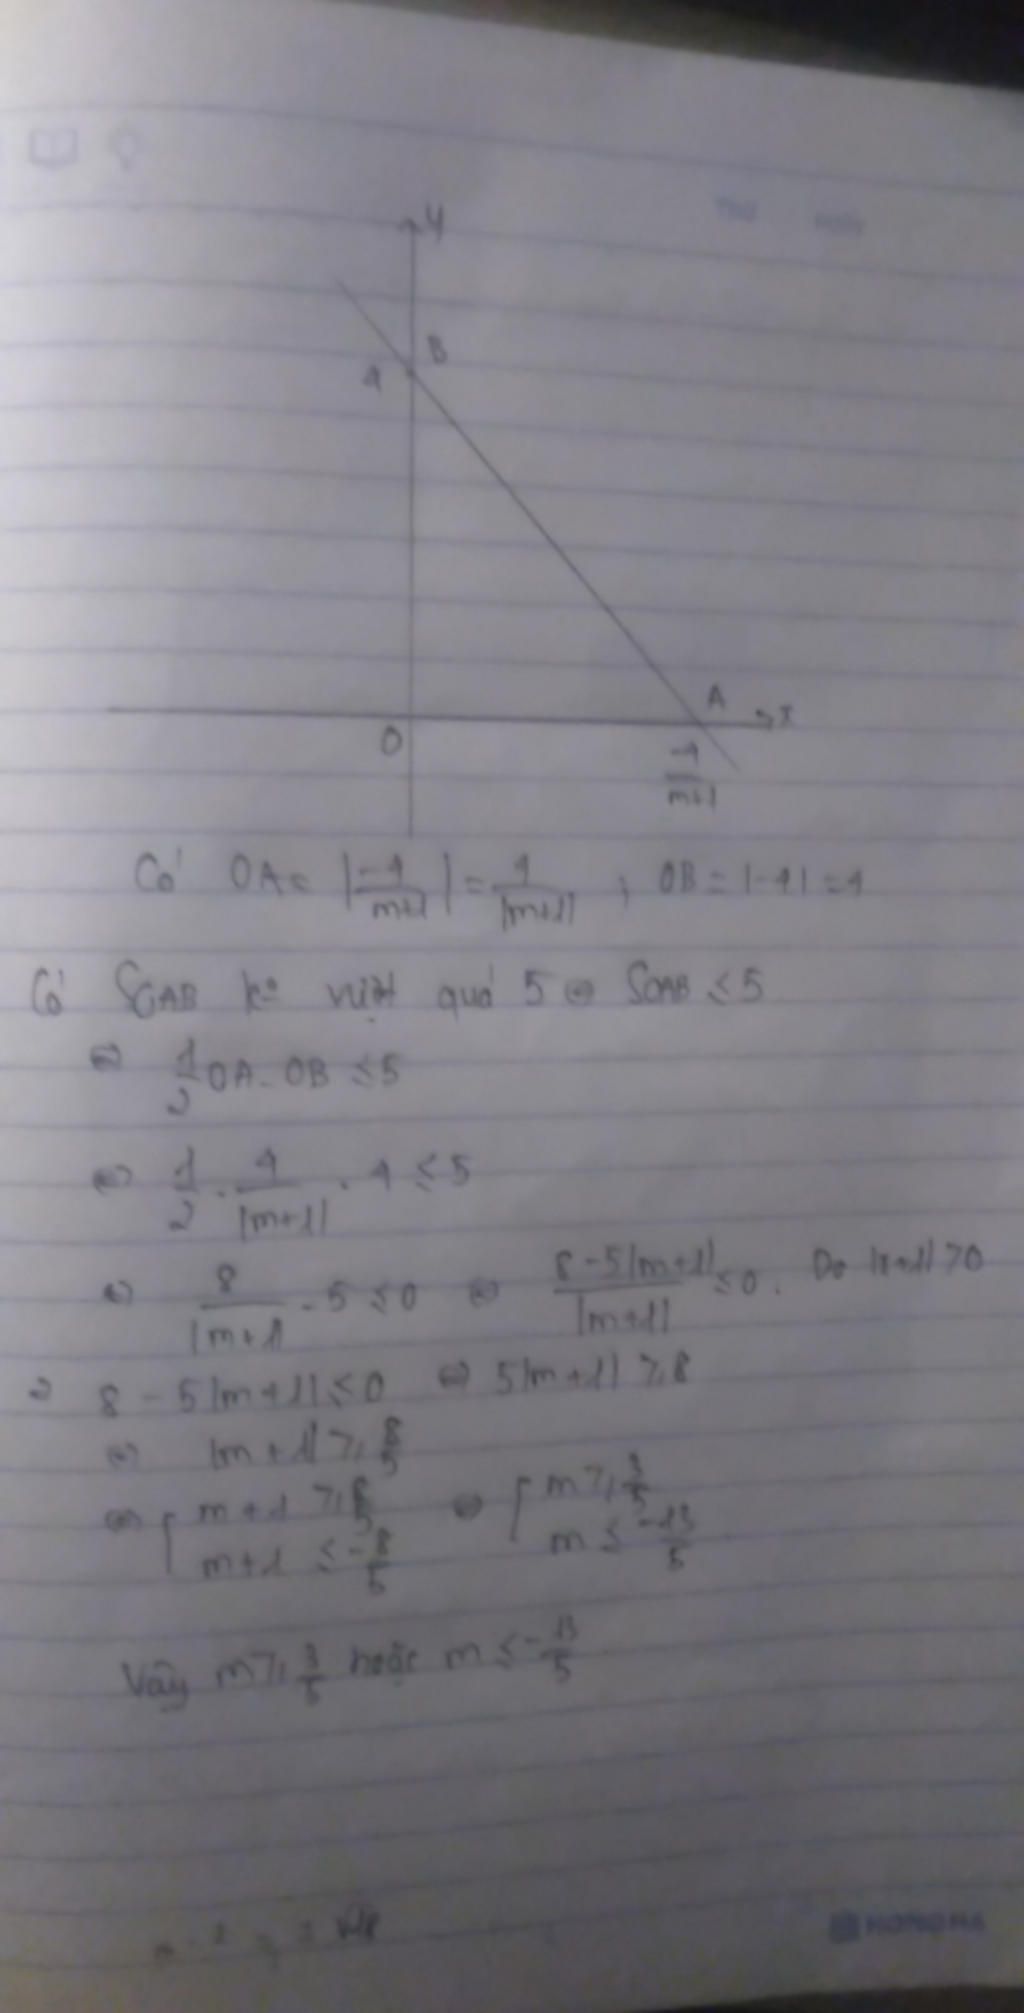 y
B
4
A
x
O
-4/(m+1)
Có OA = |-4/(m+1)| = 4/|m+1| ; OB = |-4| = 4
Có SOAB ko vượt quá 5 ⇔ SOAB ≤ 5
⇔ 1/2 OA. OB ≤ 5
⇔ 1/2 . 4/|m+1| . 4 ≤ 5
⇔ 8/|m+1| - 5 ≤ 0 ⇔ (8-5|m+1|)/|m+1| ≤ 0. Do |m+1| > 0
⇒ 8 - 5|m+1| ≤ 0 ⇔ 5|m+1| ≥ 8
⇔ |m+1| ≥ 8/5
⇔ [ m+1 ≥ 8/5 ⇔ [ m ≥ 3/5
m+1 ≤ -8/5 m ≤ -13/5
Vậy m ≥ 3/5 hoặc m ≤ -13/5
HONG HA